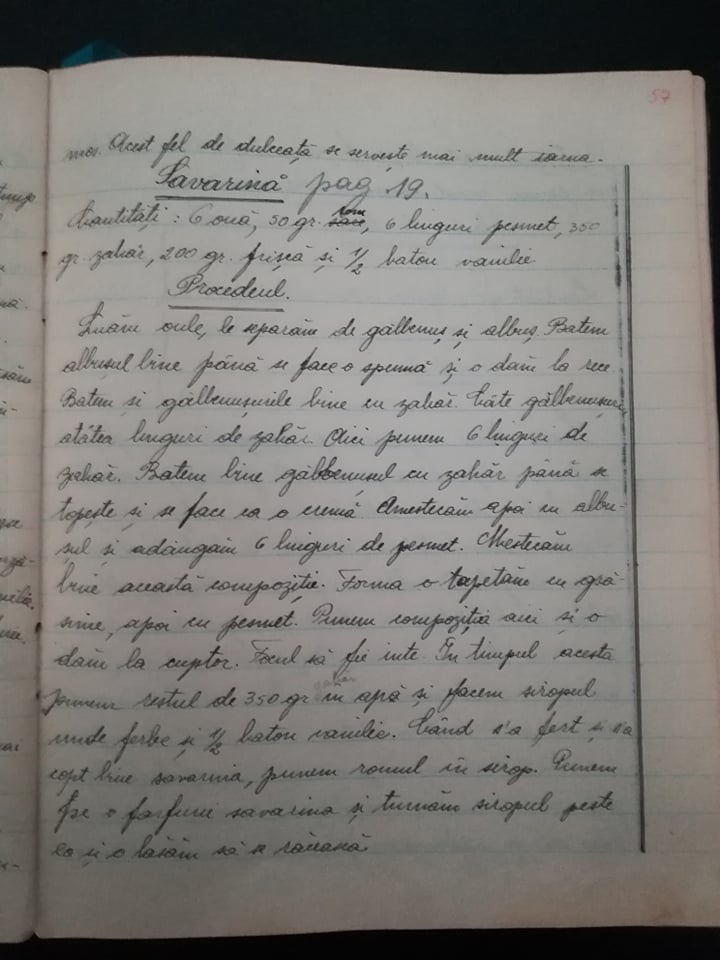 57
mos. Acest fel de dulceață se servește mai mult iarna.
Savarină pag 19.
Cantități: 6 ouă, 50 gr. rom, 6 linguri pesmet, 350
gr. zahăr, 200 gr. frișcă și 1/2 baton vanilie
Procedeul.
Luăm oule, le separăm de gălbenuș și albuș. Batem
albușul bine până se face o spumă și o dăm la rece.
Batem și gălbenușurile bine cu zahăr. Câte gălbenușuri
atâtea linguri de zahăr. Aici punem 6 linguri de
zahăr. Batem bine gălbenusul cu zahăr până se
topește și se face ca o cremă. Amestecăm apoi cu albu-
șul și adăugăm 6 linguri de pesmet. Mestecăm
bine această compoziție. Forma o tapetăm cu gră-
sime, apoi cu pesmet. Punem compoziția aici și o
dăm la cuptor. Focul să fie iute. În timpul acesta
punem restul de 350 gr zahăr în apă și facem siropul
unde ferbe și 1/2 baton vanilie. Când s'a fert și s'a
copt bine savarina, punem romul în sirop. Punem
pe o farfurie savarina și turnăm siropul peste
ea și o lăsăm să se răcească